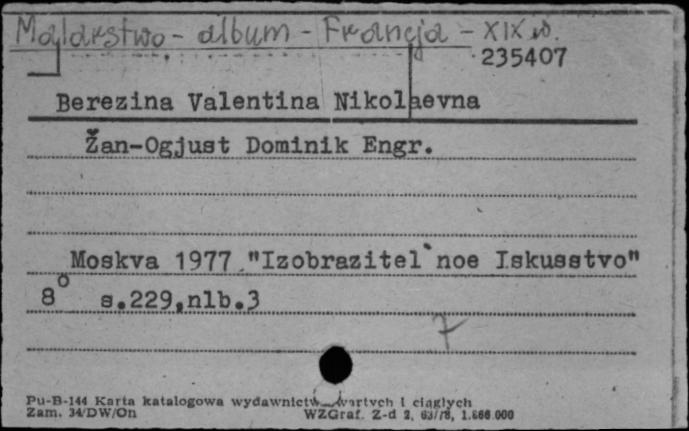 Malarstwo - album - Francja - XIX w.
235407
Berezina Valentina Nikolaevna
Žan-Ogjust Dominik Engr.
Moskva 1977 "Izobrazitel`noe Iskusstvo"
8° s.229,nlb.3
7
Pu-B-144 Karta katalogowa wydawnictw zwartych i ciągłych
Zam. 34/DW/On WZGraf. Z-d 2, 63/78, 1.666.000